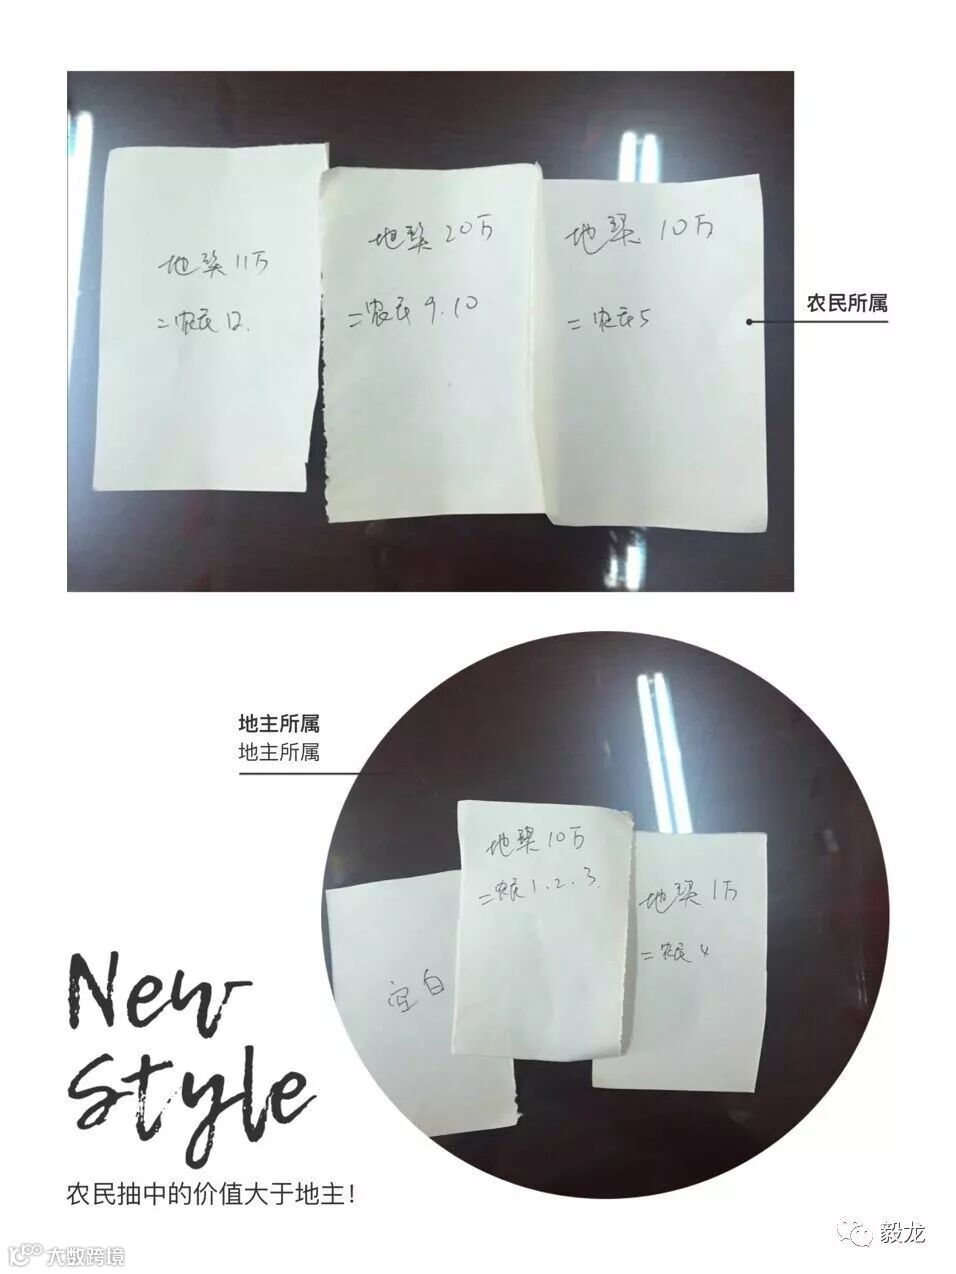 地契11万
=农民12.
地契20万
=农民9.10
地契10万
=农民5
农民所属
地主所属
地主所属
地契10万
=农民1.2.3.
地契1万
=农民4
空白
New
Style
农民抽中的价值大于地主!
大数跨境
毅龙